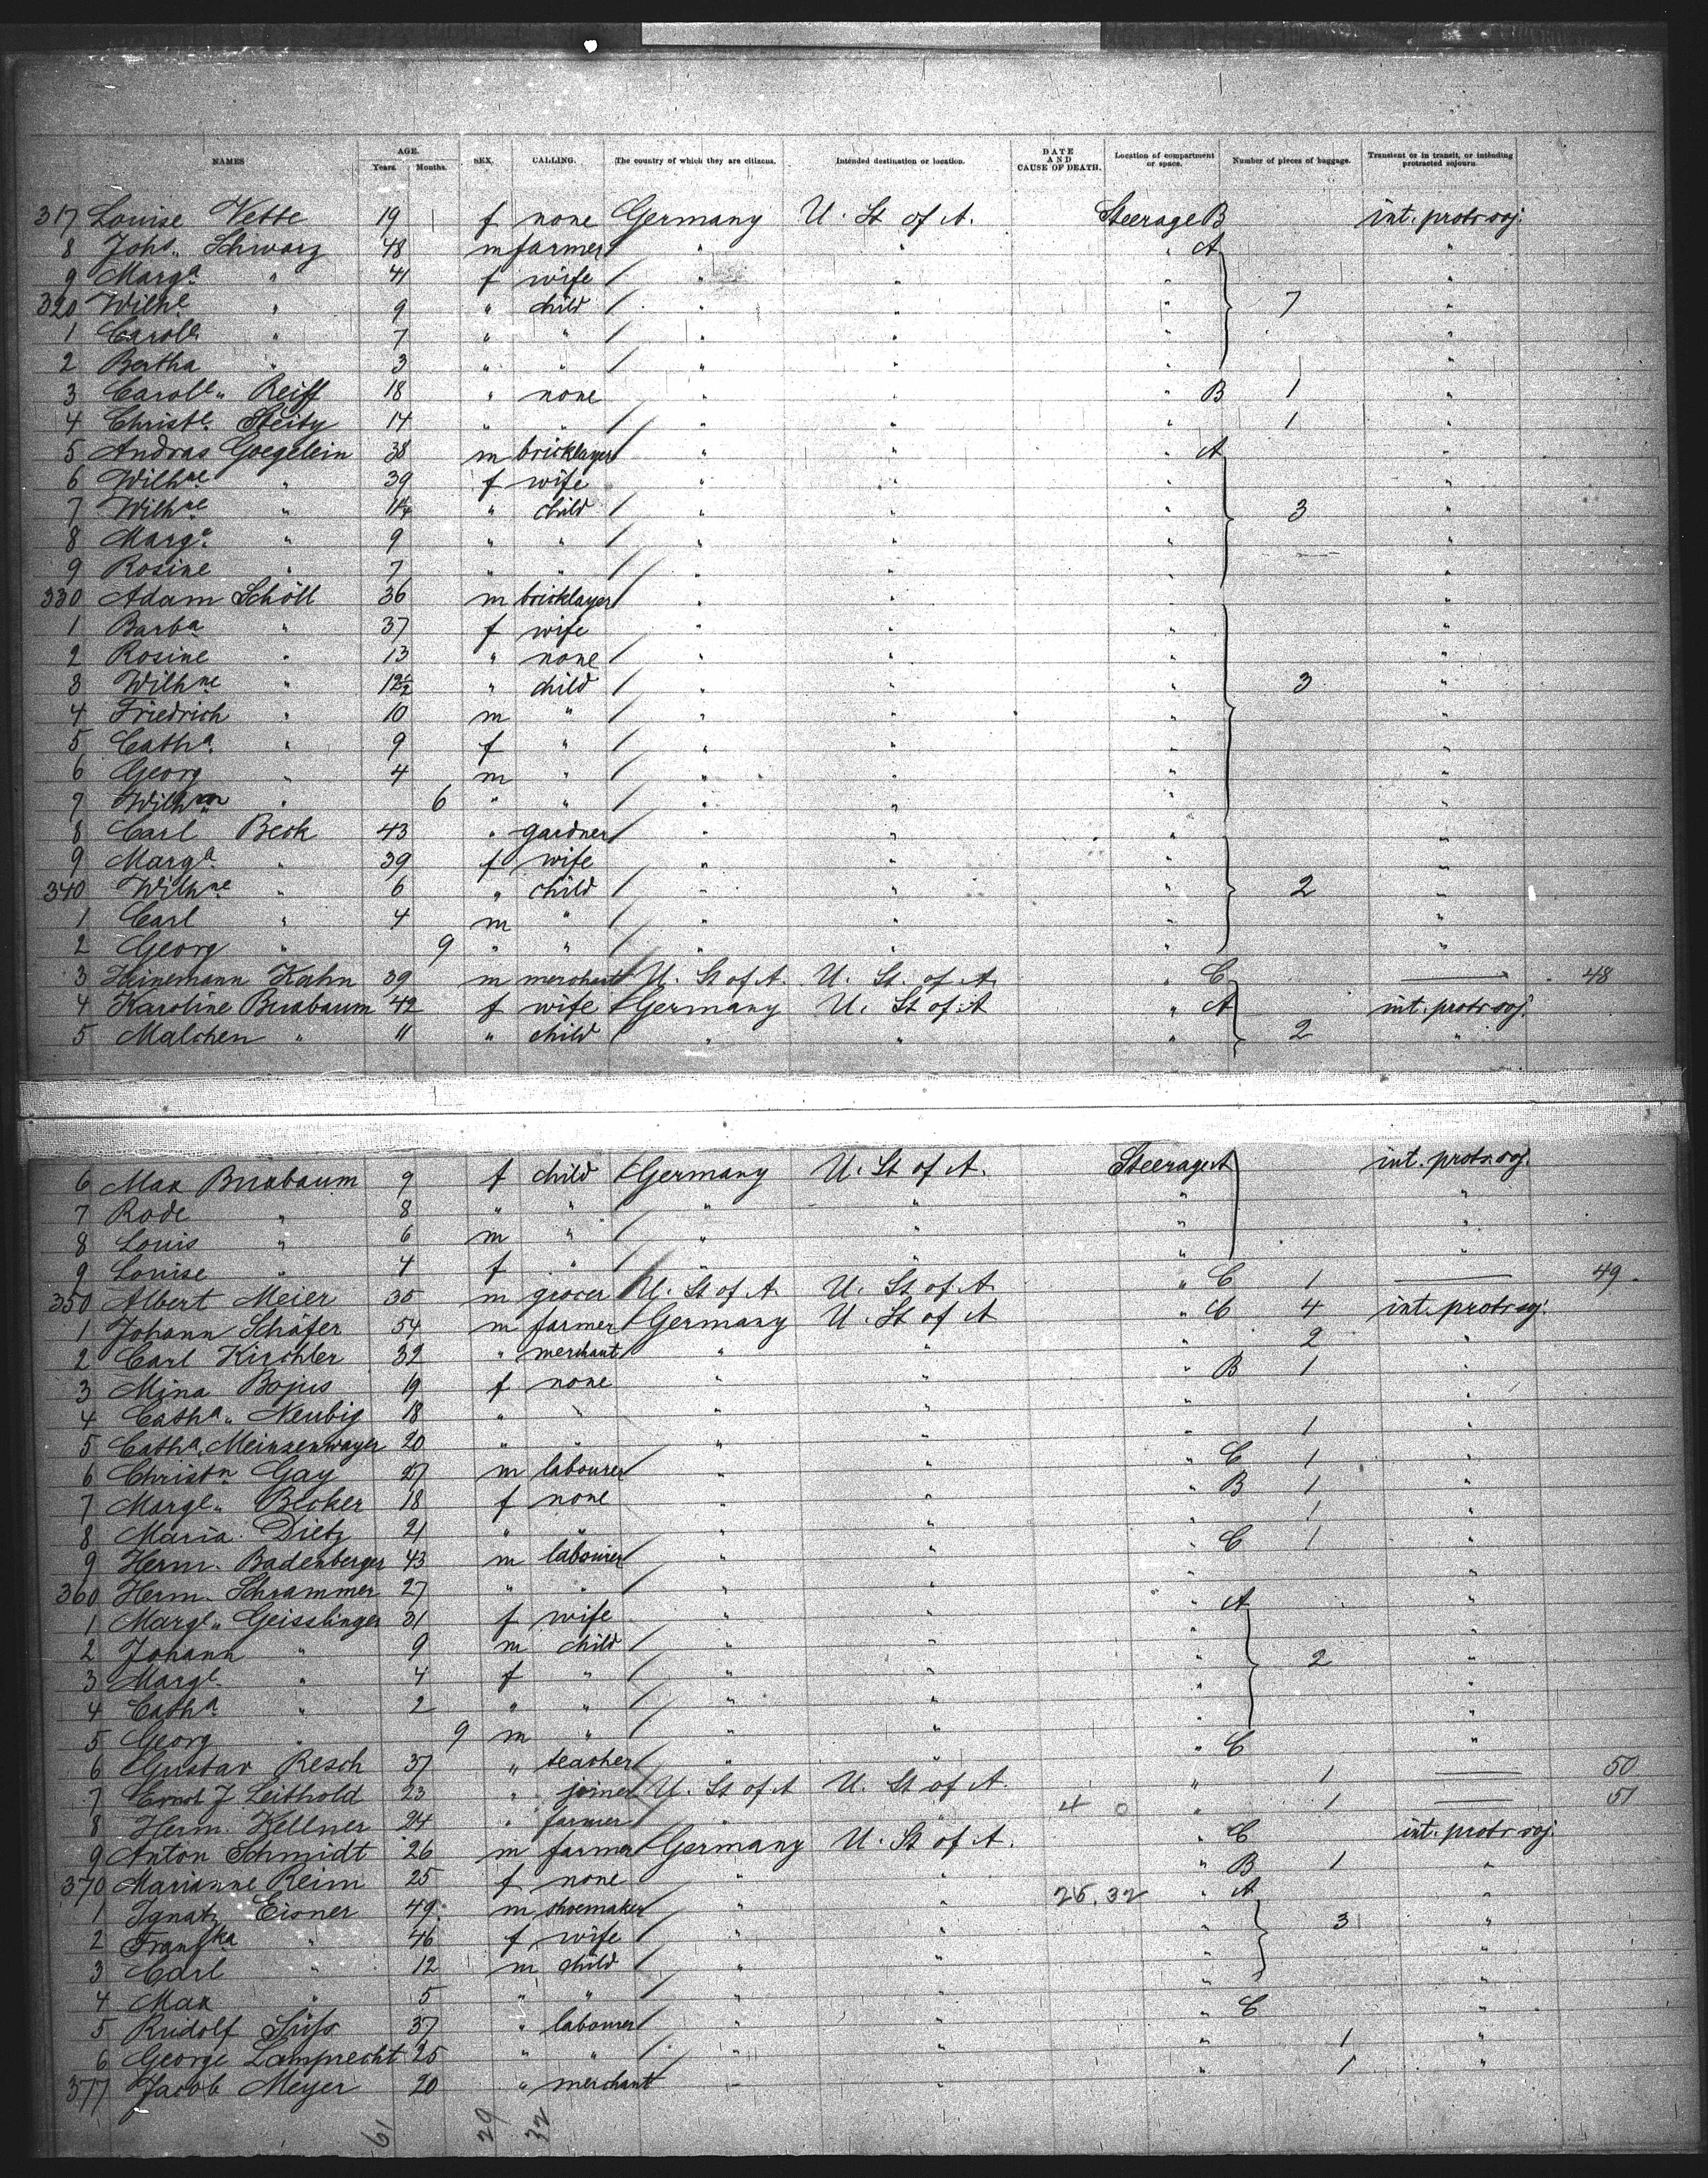 NAMES AGE. Years. Months. SEX. CALLING. The country of which they are citizens. Intended destination or location. DATE AND CAUSE OF DEATH. Location of compartment or space. Number of pieces of baggage. Transient or in transit, or intending protracted sojourn.
317 Louise Vette 19 f none Germany U. St of A. Steerage B int. protr soj.
8 Johs. Schwarz 48 m farmer " " " A "
9 Marga " 41 f wife " " " "
320 Wilhe " 9 " child " " " 7 "
1 Carole " 7 " " " " " "
2 Bertha " 3 " " " " " "
3 Carole Reiff 18 " none " " " B 1 "
4 Christe 14 " " " " " 1 "
5 Andras Goegelein 38 m bricklayer " " " A "
6 Wilhne " 39 f wife " " " "
7 Wilhne " " child " " " 3 "
8 Marga " 9 " " " " " "
9 Rosine " 7 " " " " " "
330 Adam Schöll 36 m bricklayer " " " "
1 Barba " 37 f wife " " " "
2 Rosine " 13 " none " " " "
3 Wilhne " 12½ " child " " " 3 "
4 Friedrich " 10 m " " " " "
5 Catha " 9 f " " " " "
6 Georg " 4 m " " " " "
7 Wilhm " 6 " " " " " "
8 Carl Beck 43 " gardner " " " "
9 Marga " 39 f wife " " " "
340 Wilhne " 6 " child " " " 2 "
1 Carl " 4 m " " " " "
2 Georg " 9 " " " " " "
3 Heinemann Kahn 39 m merchant U. St of A. U. St. of A. " C — 48
4 Karoline Buxbaum 42 f wife Germany U. St of A " A int. protr soj.
5 Malchen " 11 " child " " " 2 "
6 Max Buxbaum 9 f child Germany U. St of A. Steerage A int. protr. soj.
7 Rode " 8 " " " " " "
8 Louis " 6 m " " " " "
9 Louise " 4 f " " " " "
350 Albert Meier 35 m grocer U. St of A. U. St of A. " C 1 — 49
1 Johann Schäfer 54 m farmer Germany U. St of A " C 4 int. protr soj.
2 Carl Kirchler 32 " merchant " " " 2 "
3 Mina Bojus 19 f none " " " B 1 "
4 Catha. Neubig 18 " " " " "
5 Catha. Meinzenwayer 20 " " " " " 1 "
6 Christn Gay 27 m labourer " " " C 1 "
7 Margl. Becker 18 f none " " " B 1 "
8 Maria Dietz 21 " " " " 1 "
9 Herm. Badenberger 43 m labourer " " " C 1 "
360 Herm. Schrammer 27 " " " " " "
1 Margl. Geisslinger 31 f wife " " " A "
2 Johann " 9 m child " " " "
3 Margl. " 4 f " " " " 2 "
4 Catha " 2 " " " " " "
5 Georg " 9 m " " " " "
6 Gustav Resch 37 " teacher " " " C "
7 Ernst J Leithold 23 " joiner U. St of A U. St of A. " 1 — 50
8 Herm. Kellner 24 " farmer " " 4 0 " 1 — 51
9 Anton Schmidt 26 m farmer Germany U. St of A. " C int. protr soj.
370 Marianne Reim 25 f none " " " B 1 "
1 Ignatz Eisner 49 m shoemaker " " 25.32 " A "
2 Franska " 46 f wife " " " 3 "
3 Carl " 12 m child " " " "
4 Max " 5 " " " " " "
5 Rudolf Süss 37 " labourer " " " C "
6 George Lamprecht 25 " " " " " 1 "
377 Jacob Meyer 20 " merchant " " " 1 "
61 29 32